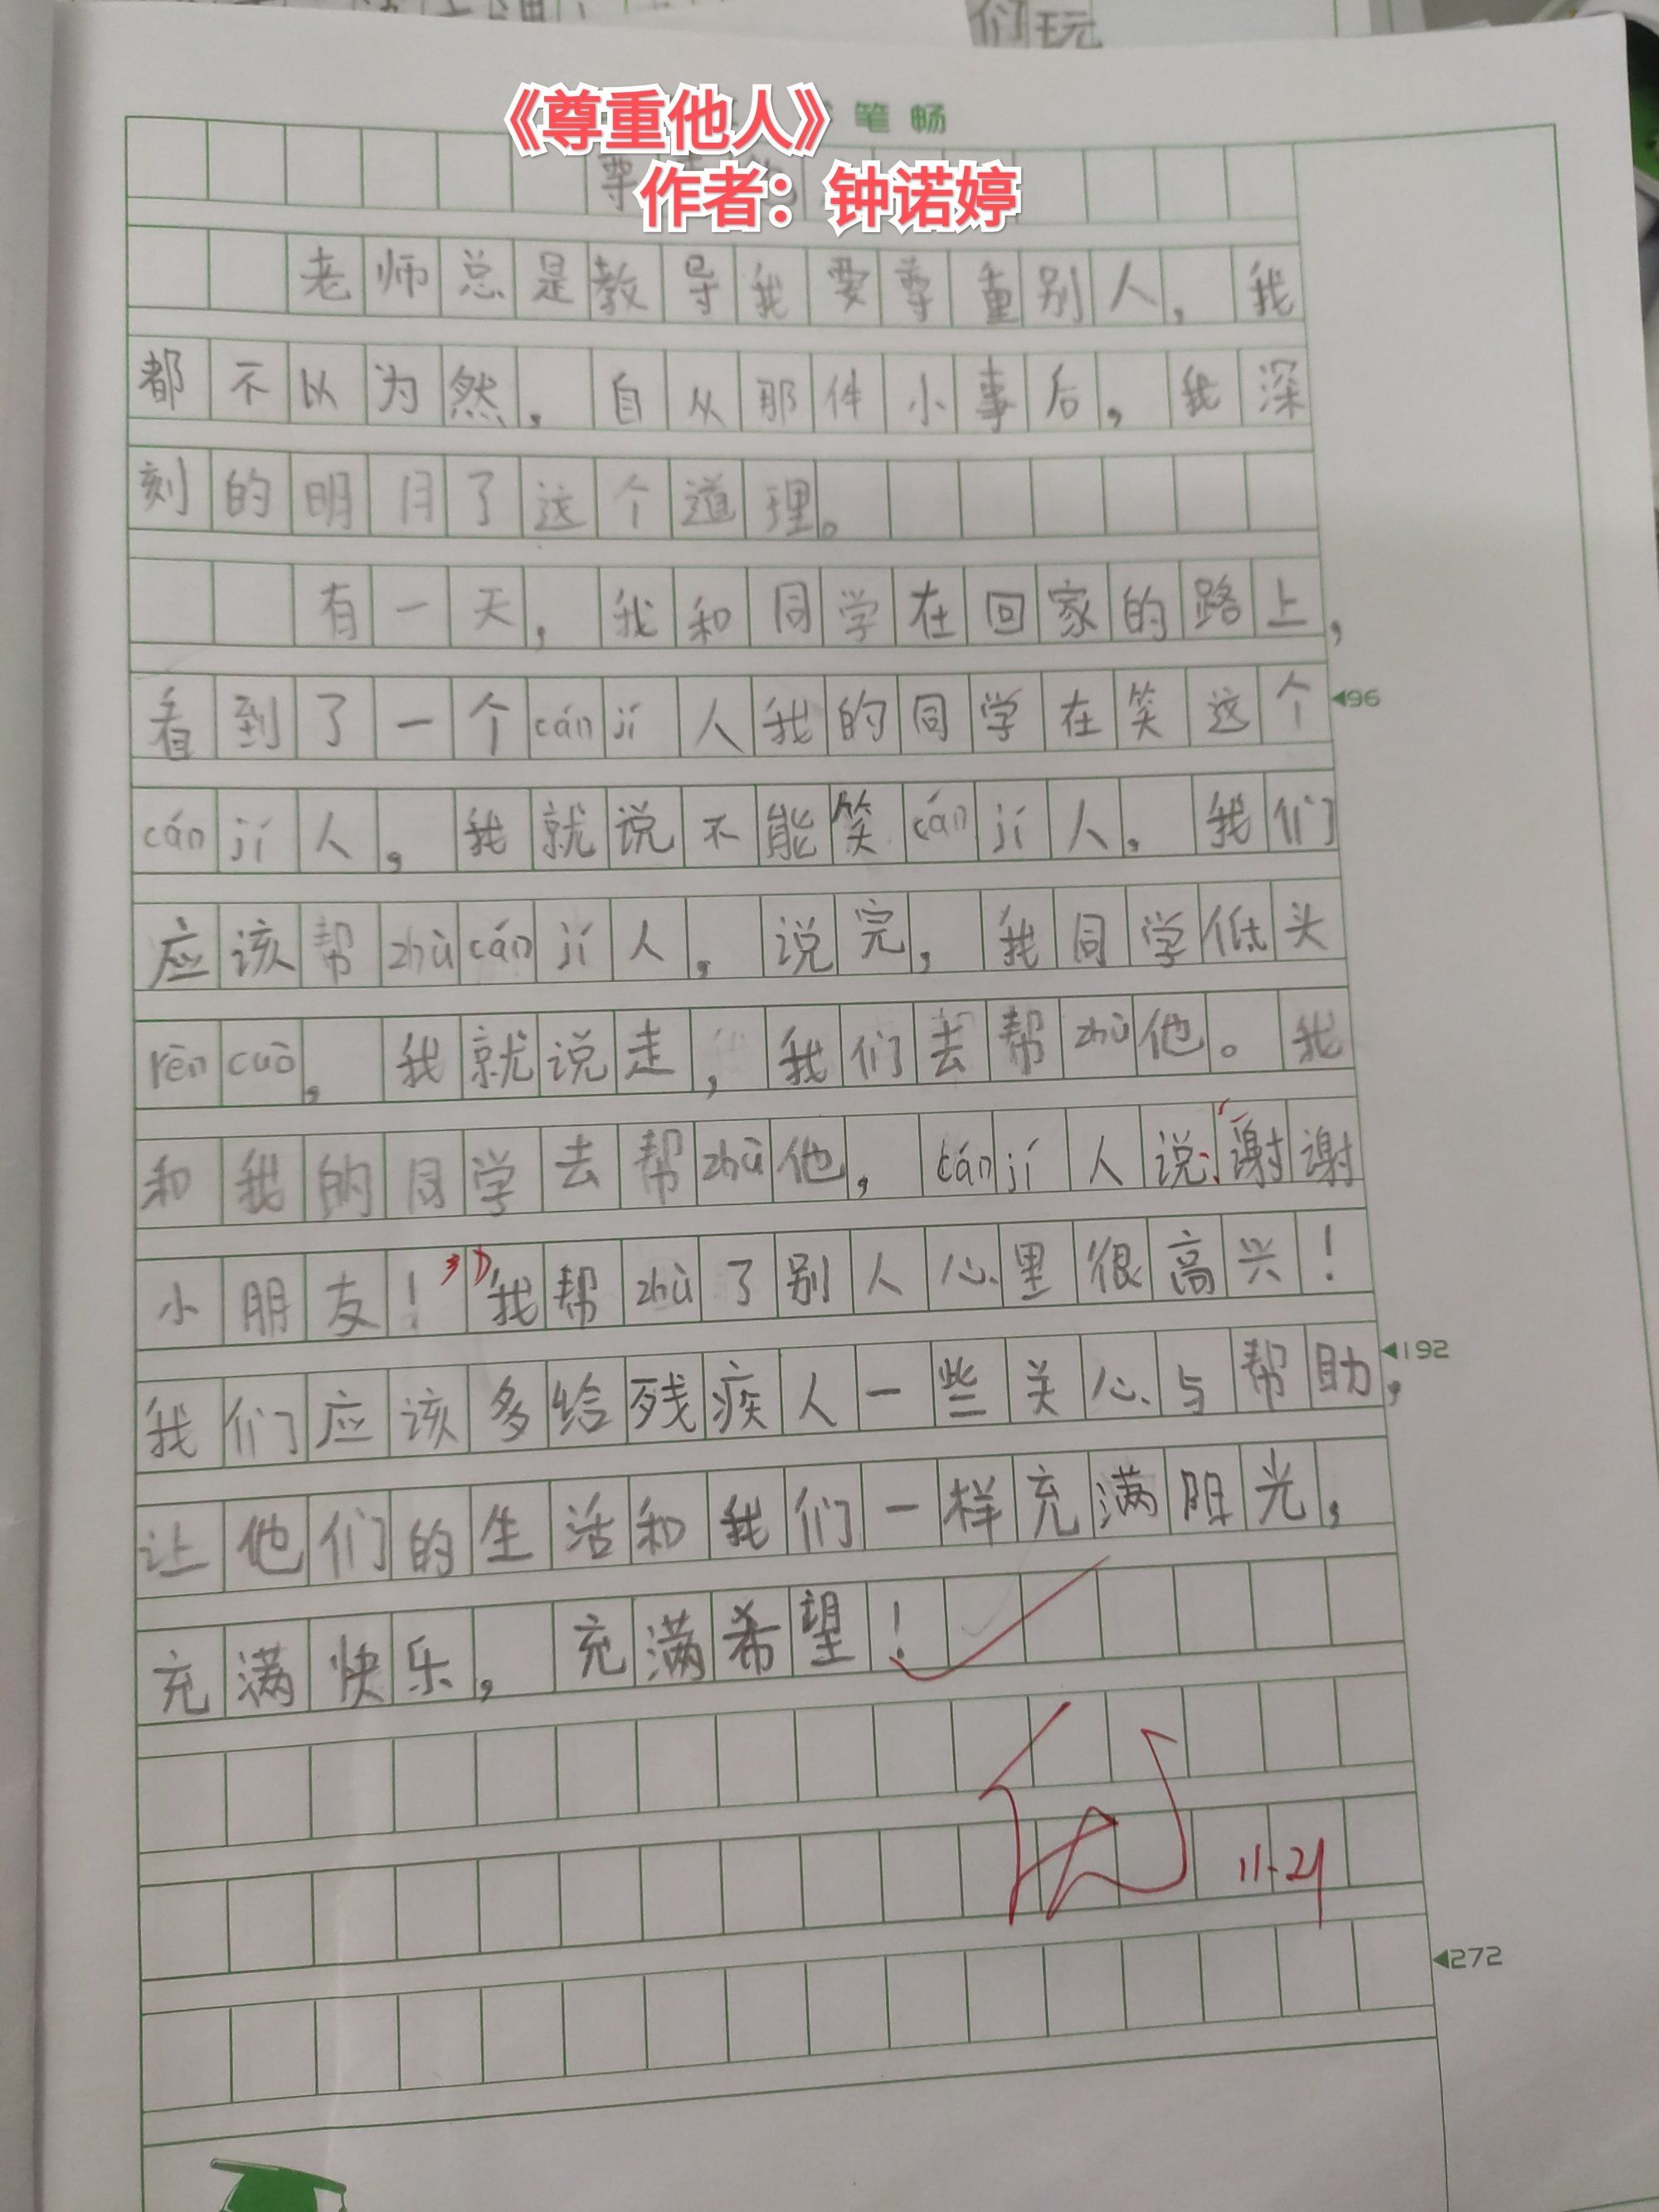 们玩
《尊重他人》
笔畅
作者：钟诺婷
老师总是教导我要尊重别人，我
都不以为然，自从那件小事后，我深
刻的明月了这个道理。
有一天，我和同学在回家的路上，
看到了一个cán jí人我的同学在笑这个
96
cán jí人，我就说不能笑cán jí人，我们
应该帮zhù cán jí人，说完，我同学低头
rèn cuò，我就说走，我们去帮zhù他。我
和我的同学去帮zhù他，cán jí人说：“谢谢
小朋友！”我帮zhù了别人心里很高兴！
192
我们应该多给残疾人一些关心与帮助，
让他们的生活和我们一样充满阳光，
充满快乐，充满希望！
11.21
272